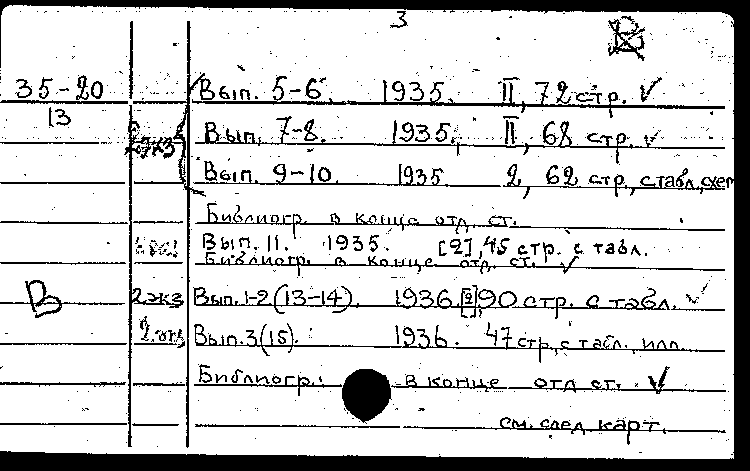 3
35-20 Вып. 5-6. 1935. II, 72 стр. ✓
13
Вып. 7-8. 1935. II, 68 стр. ✓
2 экз
Вып. 9-10. 1935 2, 62 стр., с табл., схем
Библиогр. в конце отд. ст.
Вып. 11. 1935. [2], 45 стр. с табл.
Библиогр. в конце отд. ст. ✓
В 2 экз Вып. 1-2 (13-14). 1936. [2], 90 стр. с табл. ✓
2 экз Вып. 3(15). 1936. 47 стр, с табл., илл.
Библиогр. в конце отд ст. ✓
см. след карт.